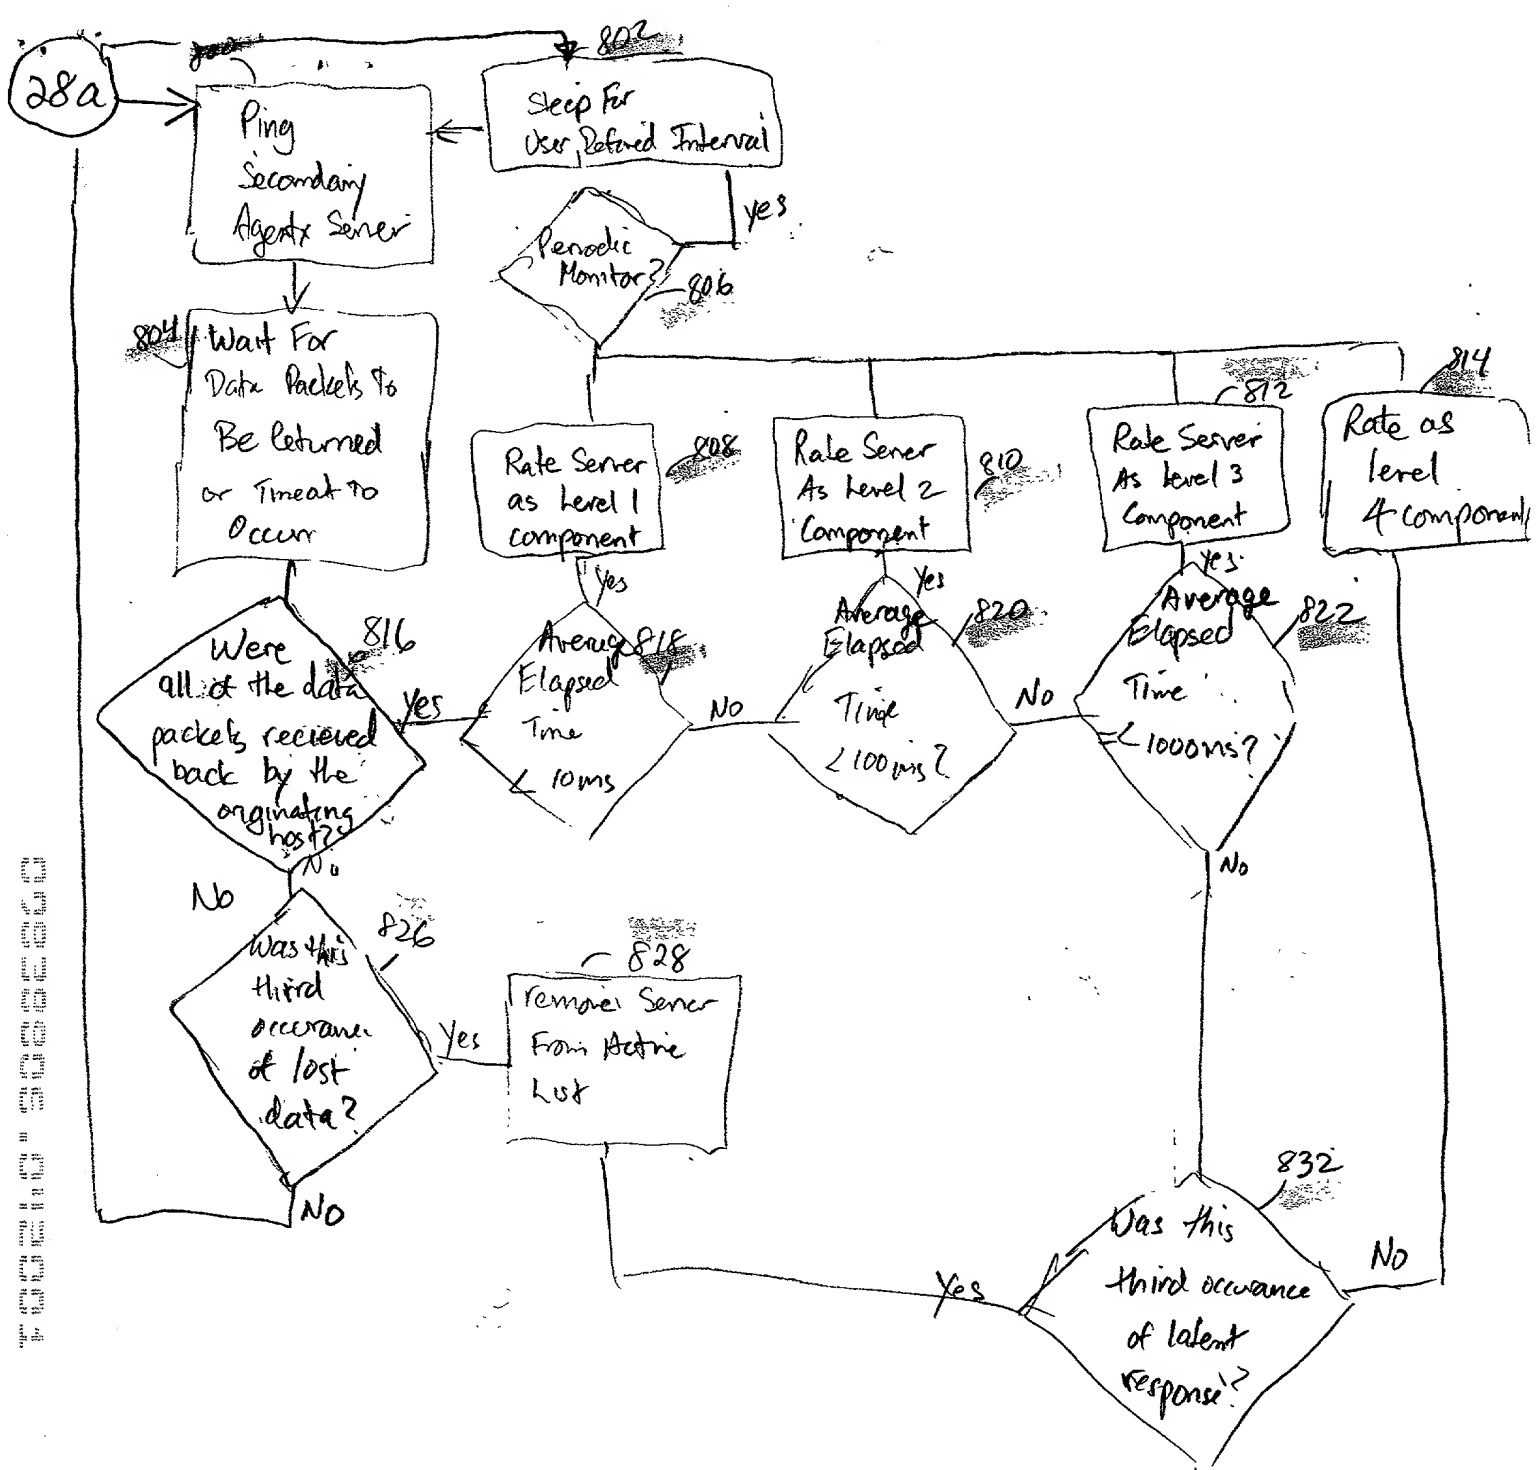 28a
802
Ping
Secondary
Agentx Server
Sleep For
User Defined Interval
yes
Periodic
Monitor?
806
804
Wait For
Data Packets To
Be Returned
or Timeout To
Occur
Rate Server
as Level 1
component
808
Rate Server
As Level 2
Component
810
812
Rate Server
As Level 3
Component
814
Rate as
level
4 component
816
Were
all of the data
packets recieved
back by the
orginating
host?
Yes
Yes
Average
Elapsed
Time
< 10ms
818
No
Yes
Average
Elapsed
Time
< 100ms?
820
No
Yes
Average
Elapsed
Time
=< 1000ms?
822
No
No
No
826
Was this
third
occurance
of lost
data?
Yes
No
828
remove Server
From Active
List
832
Was this
third occurance
of latent
response?
Yes
No